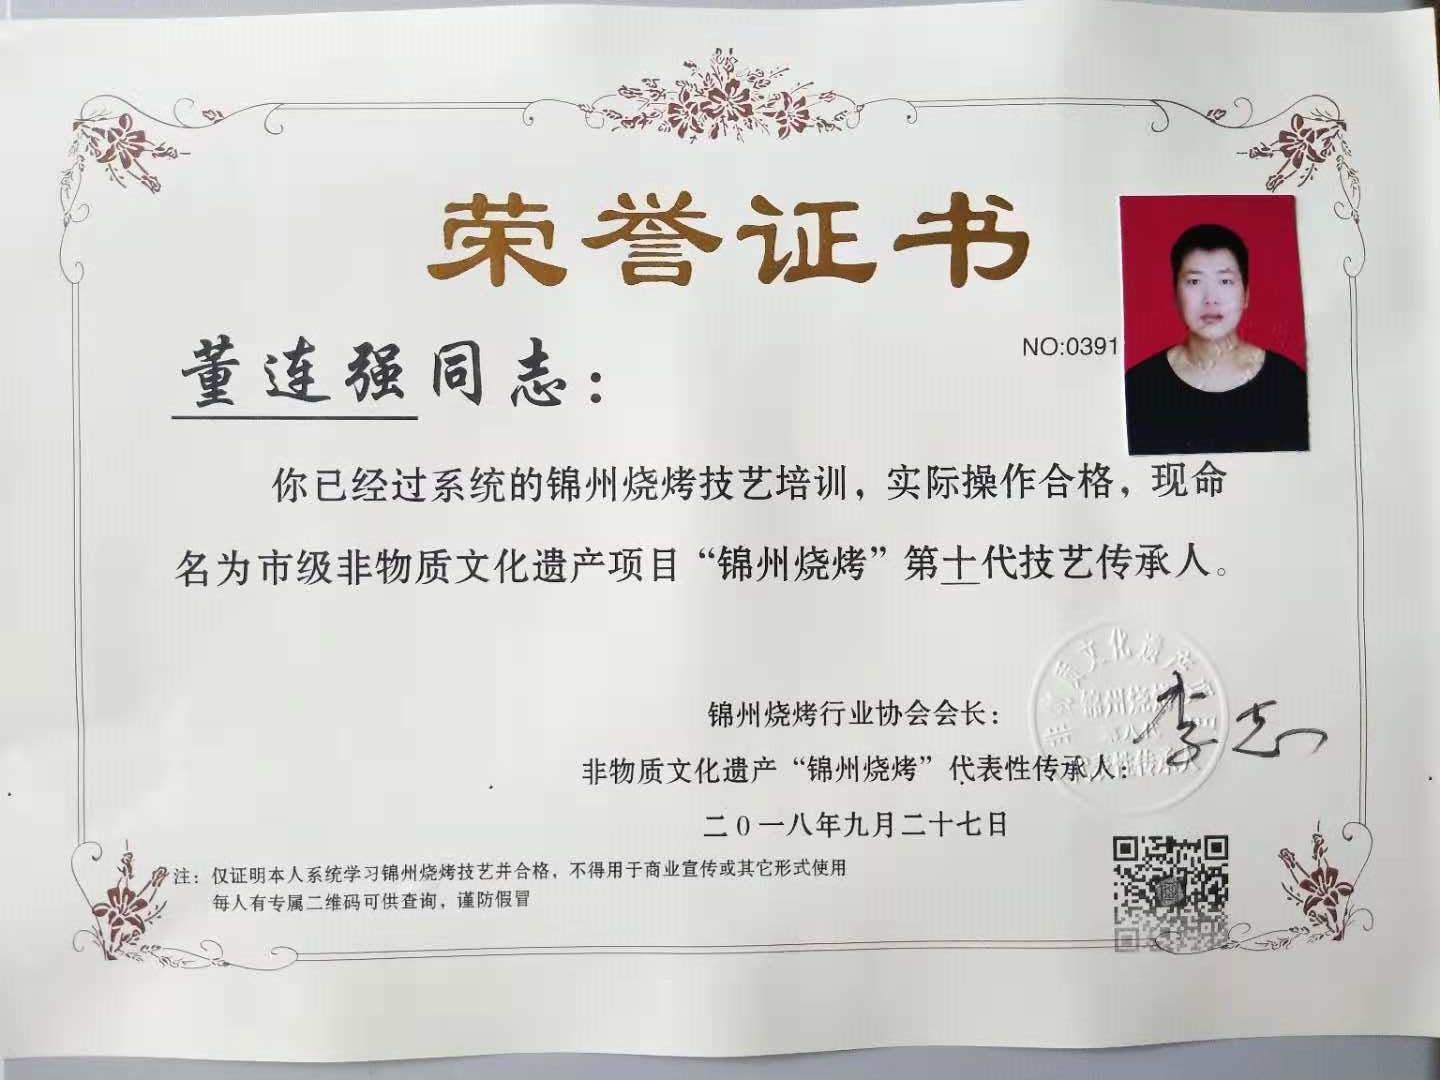 荣誉证书
NO:0391
董连强同志：
你已经过系统的锦州烧烤技艺培训，实际操作合格，现命
名为市级非物质文化遗产项目“锦州烧烤”第十代技艺传承人。
锦州烧烤行业协会会长：
李志
非物质文化遗产“锦州烧烤”代表性传承人：
二0一八年九月二十七日
注：仅证明本人系统学习锦州烧烤技艺并合格，不得用于商业宣传或其它形式使用
每人有专属二维码可供查询，谨防假冒